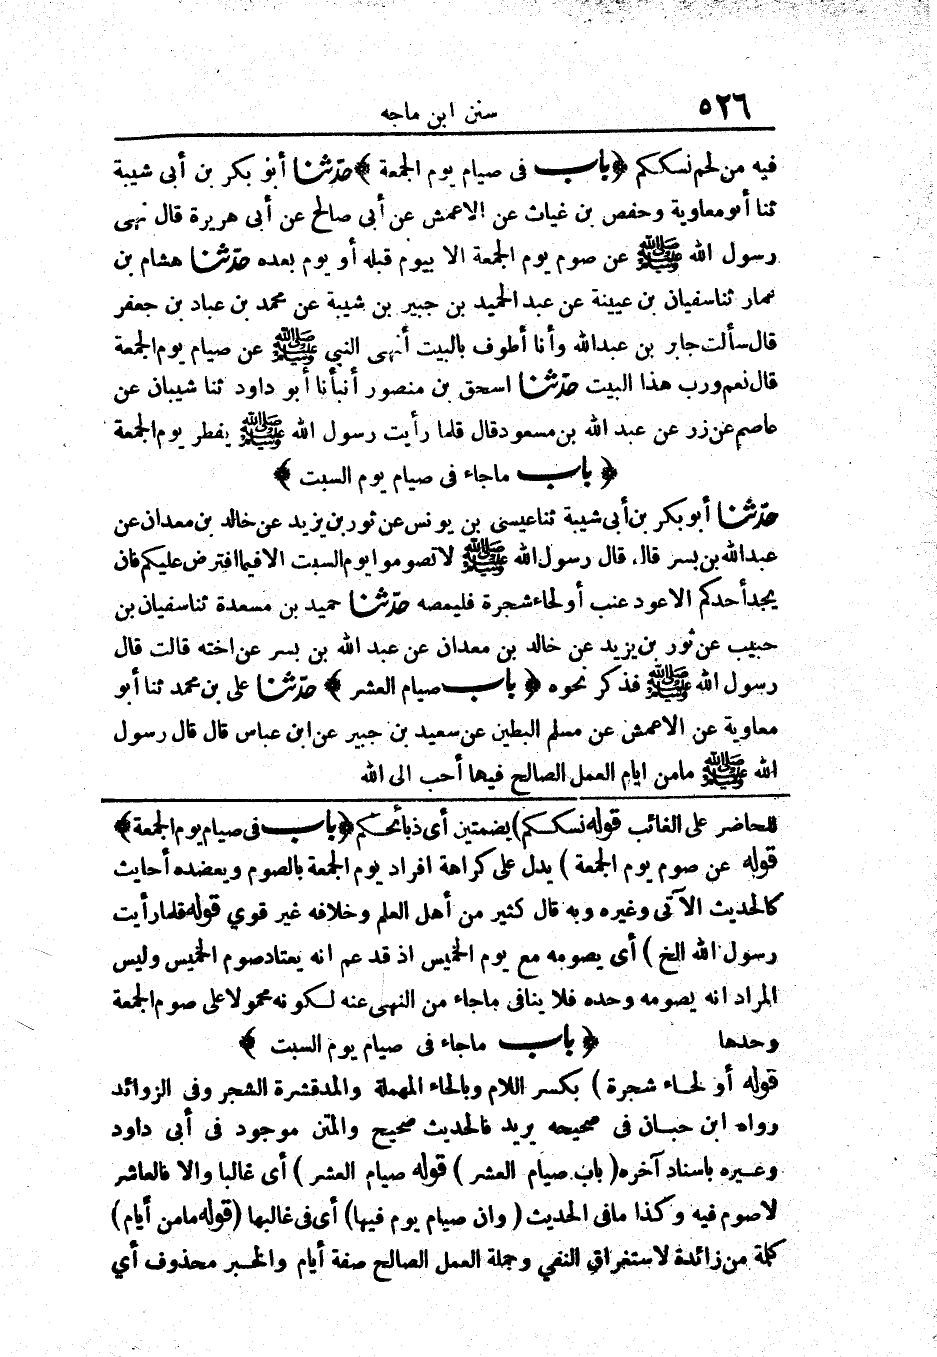 ٥٢٦
سنن ابن ماجه
فيه من لحم نسككم ﴿ باب فى صيام يوم الجمعة ﴾ حدّثنا أبو بكر بن أبى شيبة
ثنا أبو معاوية وحفص بن غياث عن الاعمش عن أبى صالح عن أبى هريرة قال نهى
رسول الله ﷺ عن صوم يوم الجمعة الا بيوم قبله أو يوم بعده حدّثنا هشام بن
عمار ثنا سفيان بن عيينة عن عبد الحميد بن جبير بن شيبة عن محمد بن عباد بن جعفر
قال سألت جابر بن عبدالله وأنا أطوف بالبيت أنهى النبي ﷺ عن صيام يوم الجمعة
قال نعم ورب هذا البيت حدّثنا اسحق بن منصور أنبأنا أبو داود ثنا شيبان عن
عاصم عن زر عن عبد الله بن مسعود قال قلما رأيت رسول الله ﷺ يفطر يوم الجمعة
﴿ باب ماجاء فى صيام يوم السبت ﴾
حدّثنا أبو بكر بن أبى شيبة ثنا عيسى بن يونس عن ثور بن يزيد عن خالد بن معدان عن
عبدالله بن بسر قال، قال رسول الله ﷺ لاتصوموا يوم السبت الا فيما افترض عليكم فان
يجد أحدكم الا عود عنب أو لحاء شجرة فليمصه حدّثنا حميد بن مسعدة ثنا سفيان بن
حبيب عن ثور بن يزيد عن خالد بن معدان عن عبد الله بن بسر عن اخته قالت قال
رسول الله ﷺ فذكر نحوه ﴿ باب صيام العشر ﴾ حدّثنا على بن محمد ثنا أبو
معاوية عن الاعمش عن مسلم البطين عن سعيد بن جبير عن ابن عباس قال قال رسول
الله ﷺ مامن ايام العمل الصالح فيها أحب الى الله
للحاضر على الغائب قوله نسككم) بضمتين أى ذبائحكم ﴿ باب فى صيام يوم الجمعة ﴾
قوله عن صوم يوم الجمعة ) يدل على كراهة افراد يوم الجمعة بالصوم ويعضده أحايث
كالحديث الآتى وغيره وبه قال كثير من أهل العلم وخلافه غير قوي قوله قلما رأيت
رسول الله الخ ) أى يصومه مع يوم الخميس اذ قد عم انه يعتاد صوم الخميس وليس
المراد انه يصومه وحده فلا ينافى ماجاء من النهى عنه لكونه محمولا على صوم الجمعة
وحدها ﴿ باب ماجاء فى صيام يوم السبت ﴾
قوله أو لحاء شجرة ) بكسر اللام وبالحاء المهملة والمد قشرة الشجر وفى الزوائد
رواه ابن حبان فى صحيحه يريد فالحديث صحيح والمتن موجود فى أبى داود
وغيره باسناد آخره( باب صيام العشر ) قوله صيام العشر ) أى غالبا والا فالعاشر
لاصوم فيه وكذا مافى الحديث ( وان صيام يوم فيها) أى فى غالبها (قوله مامن أيام)
كلمة من زائدة لاستغراق النفي وجملة العمل الصالح صفة أيام والخبر محذوف أي